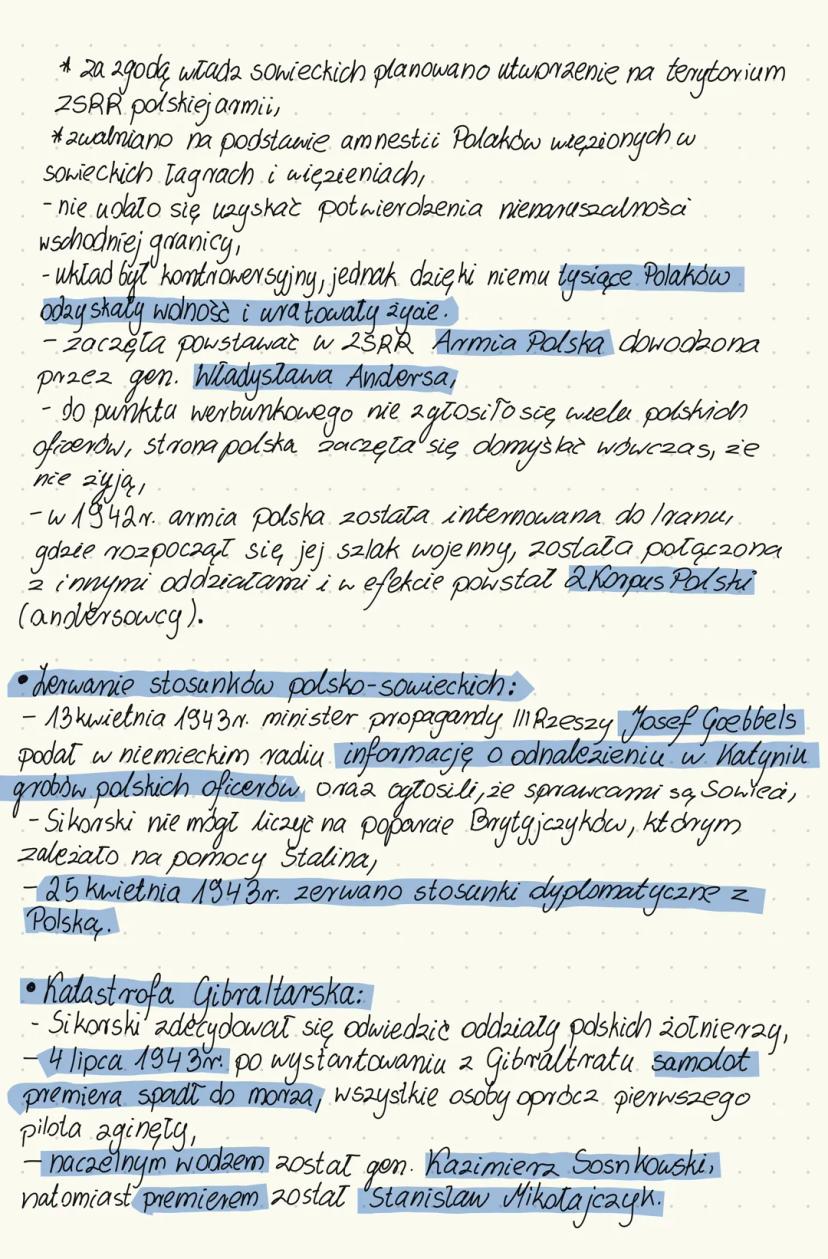 * za zgodą władz sowieckich planowano utworzenie na terytorium
ZSRR polskiej armii,
* zwalniano na podstawie amnestii Polaków więzionych w
sowieckich łagrach i więzieniach,
- nie udało się uzyskać potwierdzenia nienaruszalności
wschodniej granicy,
- układ był kontrowersyjny, jednak dzięki niemu tysiące Polaków
odzyskały wolność i uratowały życie.
- zaczęła powstawać w ZSRR Armia Polska dowodzona
przez gen. Władysława Andersa,
- do punktu werbunkowego nie zgłosiło się wielu polskich
oficerów, strona polska zaczęła się domyślać wówczas, że
nie żyją,
- w 1942r. armia polska została internowana do Iranu,
gdzie rozpoczął się jej szlak wojenny, została połączona
z innymi oddziałami i w efekcie powstał 2 Korpus Polski
(andersowcy).
• Zerwanie stosunków polsko-sowieckich:
- 13 kwietnia 1943r. minister propagandy III Rzeszy Josef Goebbels
podał w niemieckim radiu informację o odnalezieniu w Katyniu
grobów polskich oficerów oraz ogłosili, że sprawcami są Sowieci,
- Sikorski nie mógł liczyć na poparcie Brytyjczyków, którym
zależało na pomocy Stalina,
- 25 kwietnia 1943r. zerwano stosunki dyplomatyczne z
Polską.
• Katastrofa Gibraltarska:
- Sikorski zdecydował się odwiedzić oddziały polskich żołnierzy,
- 4 lipca 1943r. po wystartowaniu z Gibraltratu samolot
premiera spadł do morza, wszystkie osoby oprócz pierwszego
pilota zginęły,
- naczelnym wodzem został gen. Kazimierz Sosnkowski,
natomiast premierem został Stanisław Mikołajczyk.